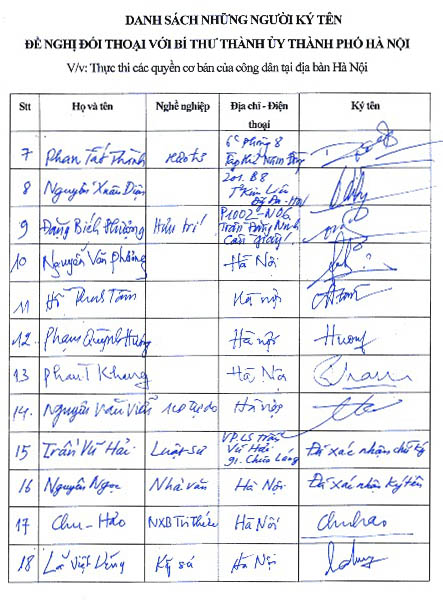 DANH SÁCH NHỮNG NGƯỜI KÝ TÊN
ĐỀ NGHỊ ĐỐI THOẠI VỚI BÍ THƯ THÀNH ỦY THÀNH PHỐ HÀ NỘI
V/v: Thực thi các quyền cơ bản của công dân tại địa bàn Hà Nội
Stt Họ và tên Nghề nghiệp Địa chỉ - Điện thoại Ký tên
7 Phan Tất Thành
8 Nguyễn Xuân Diện 201. B8
9 Đặng Bích Phượng Hưu trí P1002-N06 Trần Đăng Ninh Cầu giấy
10 Nguyễn Văn Phông Hà Nội
11 Hà nội
12 Phạm Quỳnh Hương Hà nội Hương
13 Phan T Khang Hà Nội
14. Nguyễn Văn Viễn KD tự do Hà nội
15 Trần Vũ Hải Luật sư VPLS Trần Vũ Hải 91. Chùa Láng Đã xác nhận chữ ký
16 Nguyên Ngọc Nhà văn Hà Nội Đã xác nhận ký tên
17 Chu-Hảo NXB Tri thức Hà Nội chuhao
18 Lã Việt Dũng Kỹ sư Hà Nội